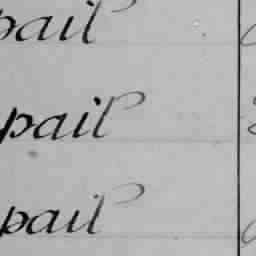 pail
pail
pail